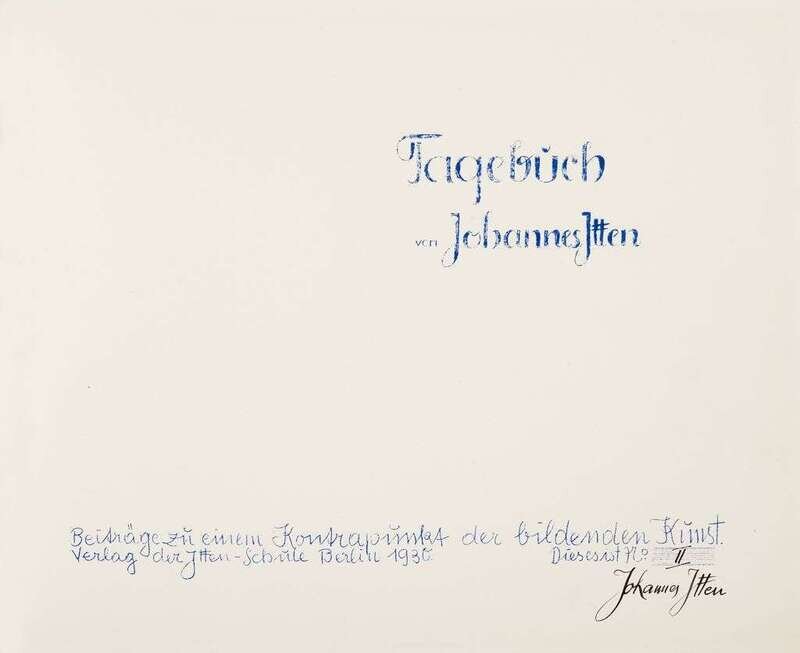 Tagebuch
von Johannes Itten
Beiträge zu einem Kontrapunkt der bildenden Kunst.
Verlag der Itten-Schule Berlin 1930
Dieses ist No. II
Johannes Itten